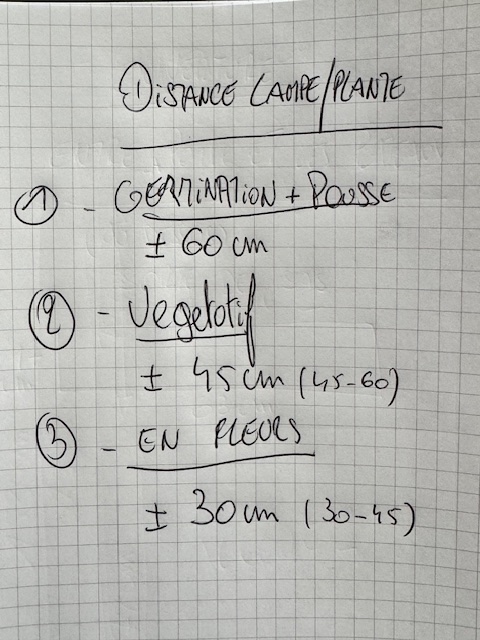 DISTANCE LAMPE/PLANTE
1 - GERMINATION + POUSSE
± 60 cm
2 - Vegetatif
± 45 cm (45-60)
3 - EN FLEURS
± 30 cm (30-45)